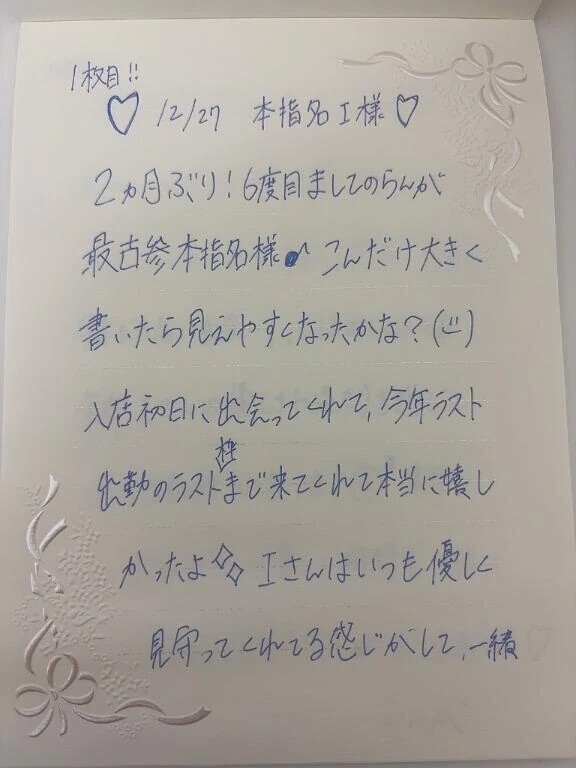 1枚目!!
♡ 12/27 本指名I様♡
2ヵ月ぶり!6度目ましてのらんが
最古参本指名様♪ こんだけ大きく
書いたら見えやすくなったかな?(¨̮)
入店初日に出会ってくれて、今年ラスト
枠
出勤のラストまで来てくれて本当に嬉し
かったよ✧✧ Iさんはいつも優しく
見守ってくれてる感じがして、一緒